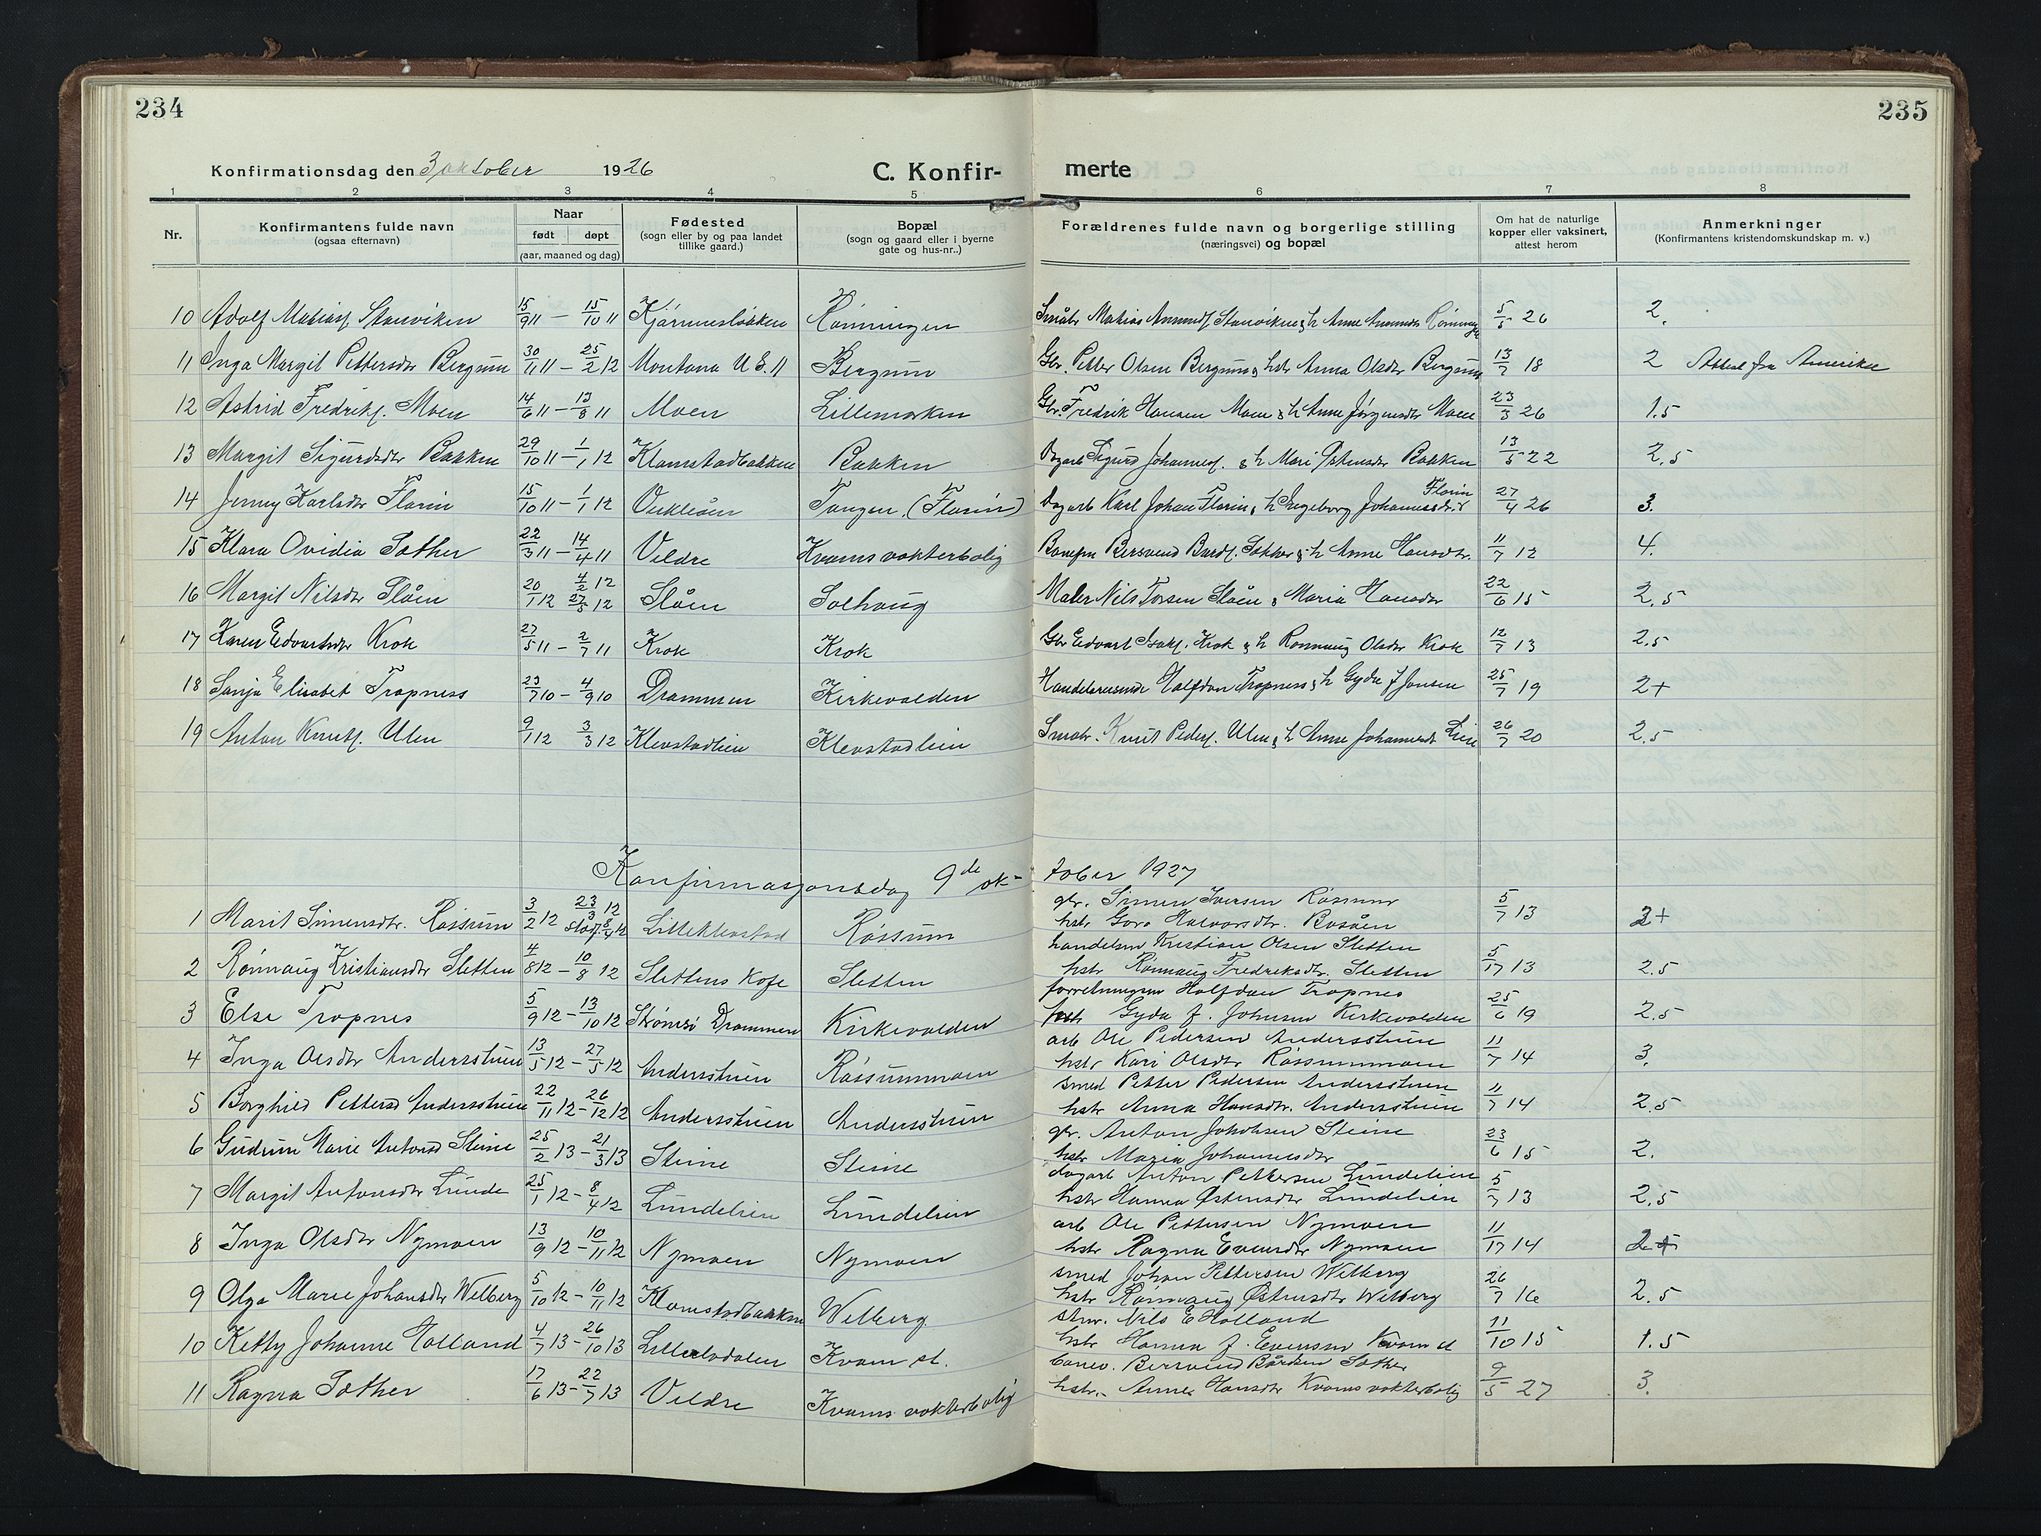 234
235
Konfirmationsdag den 3 oktober 1926
C. Konfir-
merte
1 2 3 4 5 6 7 8
Nr.
Konfirmantens fulde navn
(ogsaa efternavn)
Naar
født døpt
(aar, maaned og dag)
Fødested
(sogn eller by og paa landet
tillike gaard.)
Bopæl
(sogn og gaard eller i byerne
gate og hus-nr..)
Forældrenes fulde navn og borgerlige stilling
(næringsvei) og bopæl
Om hat de naturlige
kopper eller vaksinert,
attest herom
Anmerkninger
(Konfirmantens kristendomskundskap m. v.)
10 Adolf Matiasf. Stanviken 15/9 11 – 15/10 11 Rønningen Småbr. Matias Amundsf. Stanviken & h. Anne 5/5 26 2.
11 Inga Margit Pettersdtr Bergum 30/11 11 – 25/2 12 Montana U.S. Bergum Gbr. Petter Olsen Bergum & hstr Anna Olsdtr Bergum 13/7 18 2 Attest fra Amerika
12 Astrid Fredrikf. Moen 14/6 11 – 13/8 11 Moen Lillemarken Gbr. Fredrik Hansen Moen & h. Anne Jørgensdtr Moen 23/3 26 1.5
13 Margit Sigurdsdtr Bakken 29/10 11 – 1/1 12 Klomstadbakken Bakken Dagarb Sigurd Johannesf. & h. Mari Østensdtr Bakken 13/5 22 2.5
14 Jenny Karlsdtr Florin 15/10 11 – 1/1 12 Tangen (Florin) Dagarb Karl Johan Florin & h. Ingeborg Johannesdtr Florin 27/4 26 3.
15 Klara Ovidia Sæther 22/3 11 – 14/4 11 Veldre Kvams vokterbolig Banefm Bersvend Bardf. Sæther & h. Anne Hansdtr. 11/7 12 4.
16 Margit Nilsdtr Sløen 20/1 12 4/2 12 27/5 12 Sløen Solhaug Maler Nils Torsen Sløen & Maria Hansdtr 22/6 15 2.5
17 Karen Edvartsdtr Krok 27/5 11 – 2/7 11 Krok Krok Gbr Edvart Isakf. Krok & h. Rønnaug Olsdtr Krok 12/7 13 2.5
18 Sonja Elisabet Tropness 23/7 10 – 4/9 10 Drammen Kirkevolden Handelsreisende Halfdan Tropness & h. Gyda J. Jonsen 25/7 19 2+
19 Anton Knutf. Ulen 9/1 12 3/3 12 Klevstadlien Klevstadlien Småbr. Knut Pedersf. Ulen & h. Anne Johannesdtr Lien 26/7 20 2.5
Konfirmasjonsdag 9de ok-
tober 1927
1 Marit Simensdtr. Røssum 3/2 12 23/3 12 stadf 8/4 12 Lilleklevstad Røssum gbr. Simen Iversen Røssum
hstr Goro Halvorsdtr. Bosåen 5/7 13 2+
2 Rønnaug Kristiansdtr Sletten 4/8 12 – 10/8 12 Slettens Kafe Sletten handelsm Kristian Olsen Sletten
hstr Rønnaug Fredriksdtr. Sletten 5/17 13 2.5
3 Else Tropnes 5/9 12 – 13/10 12 Strømsø Drammen Kirkevolden forretningsm Halfdan Tropnes
hstr Gyda J. Johnsen Kirkevolden 25/6 19 2.5
4 Inga Olsdtr Andersstuen 13/5 12 – 27/5 12 Andersstuen Røssummoen arb Ole Pedersen Andersstuen
hstr Kari Olsdtr Røssummoen 11/7 14 3.
5 Borghild Pettersd Andersstuen 22/11 12 – 26/12 12 Andersstuen Andersstuen smed Petter Pedersen Andersstuen
hstr Anna Hansdtr. Andersstuen 11/7 14 2.5
6 Gudrun Marie Antonsd Steine 25/2 13 – 21/3 13 Steine Steine gbr. Anton Jakobsen Steine
hstr Maria Johannesdtr 23/6 15 2.
7 Margit Antonsdtr Lunde 25/1 12 – 8/4 12 Lundelien Lundelien dagarb Anton Pettersen Lundelien
hstr Hanna Østensdtr Lundelien 5/7 13 2.5
8 Inga Olsdtr Nymoen 13/9 12 – 10/11 12 Nymoen Nymoen arb Ole Pettersen Nymoen
hstr Ragna Evensdtr Nymoen 11/17 14
9 Olga Marie Johansdtr Welberg 5/10 12 – 10/11 12 Klomstadbakken Welberg smed Johan Pettersen Welberg
hstr Rønnaug Østensdtr Welberg 26/7 16 2.5
10 Ketty Johanne Holland 4/7 13 – 26/10 13 Kvam st. Nils E Holland
hstr Hanna J. Evensen Kvam st 11/10 15 1.5
11 Ragna Sæther 17/6 13 – 22/7 13 Veldre Kvams vokterbolig banev. Bersvend Bårdsen Sæther
hstr. Anne Hansdtr Kvams vokterbolig 9/5 27 3.